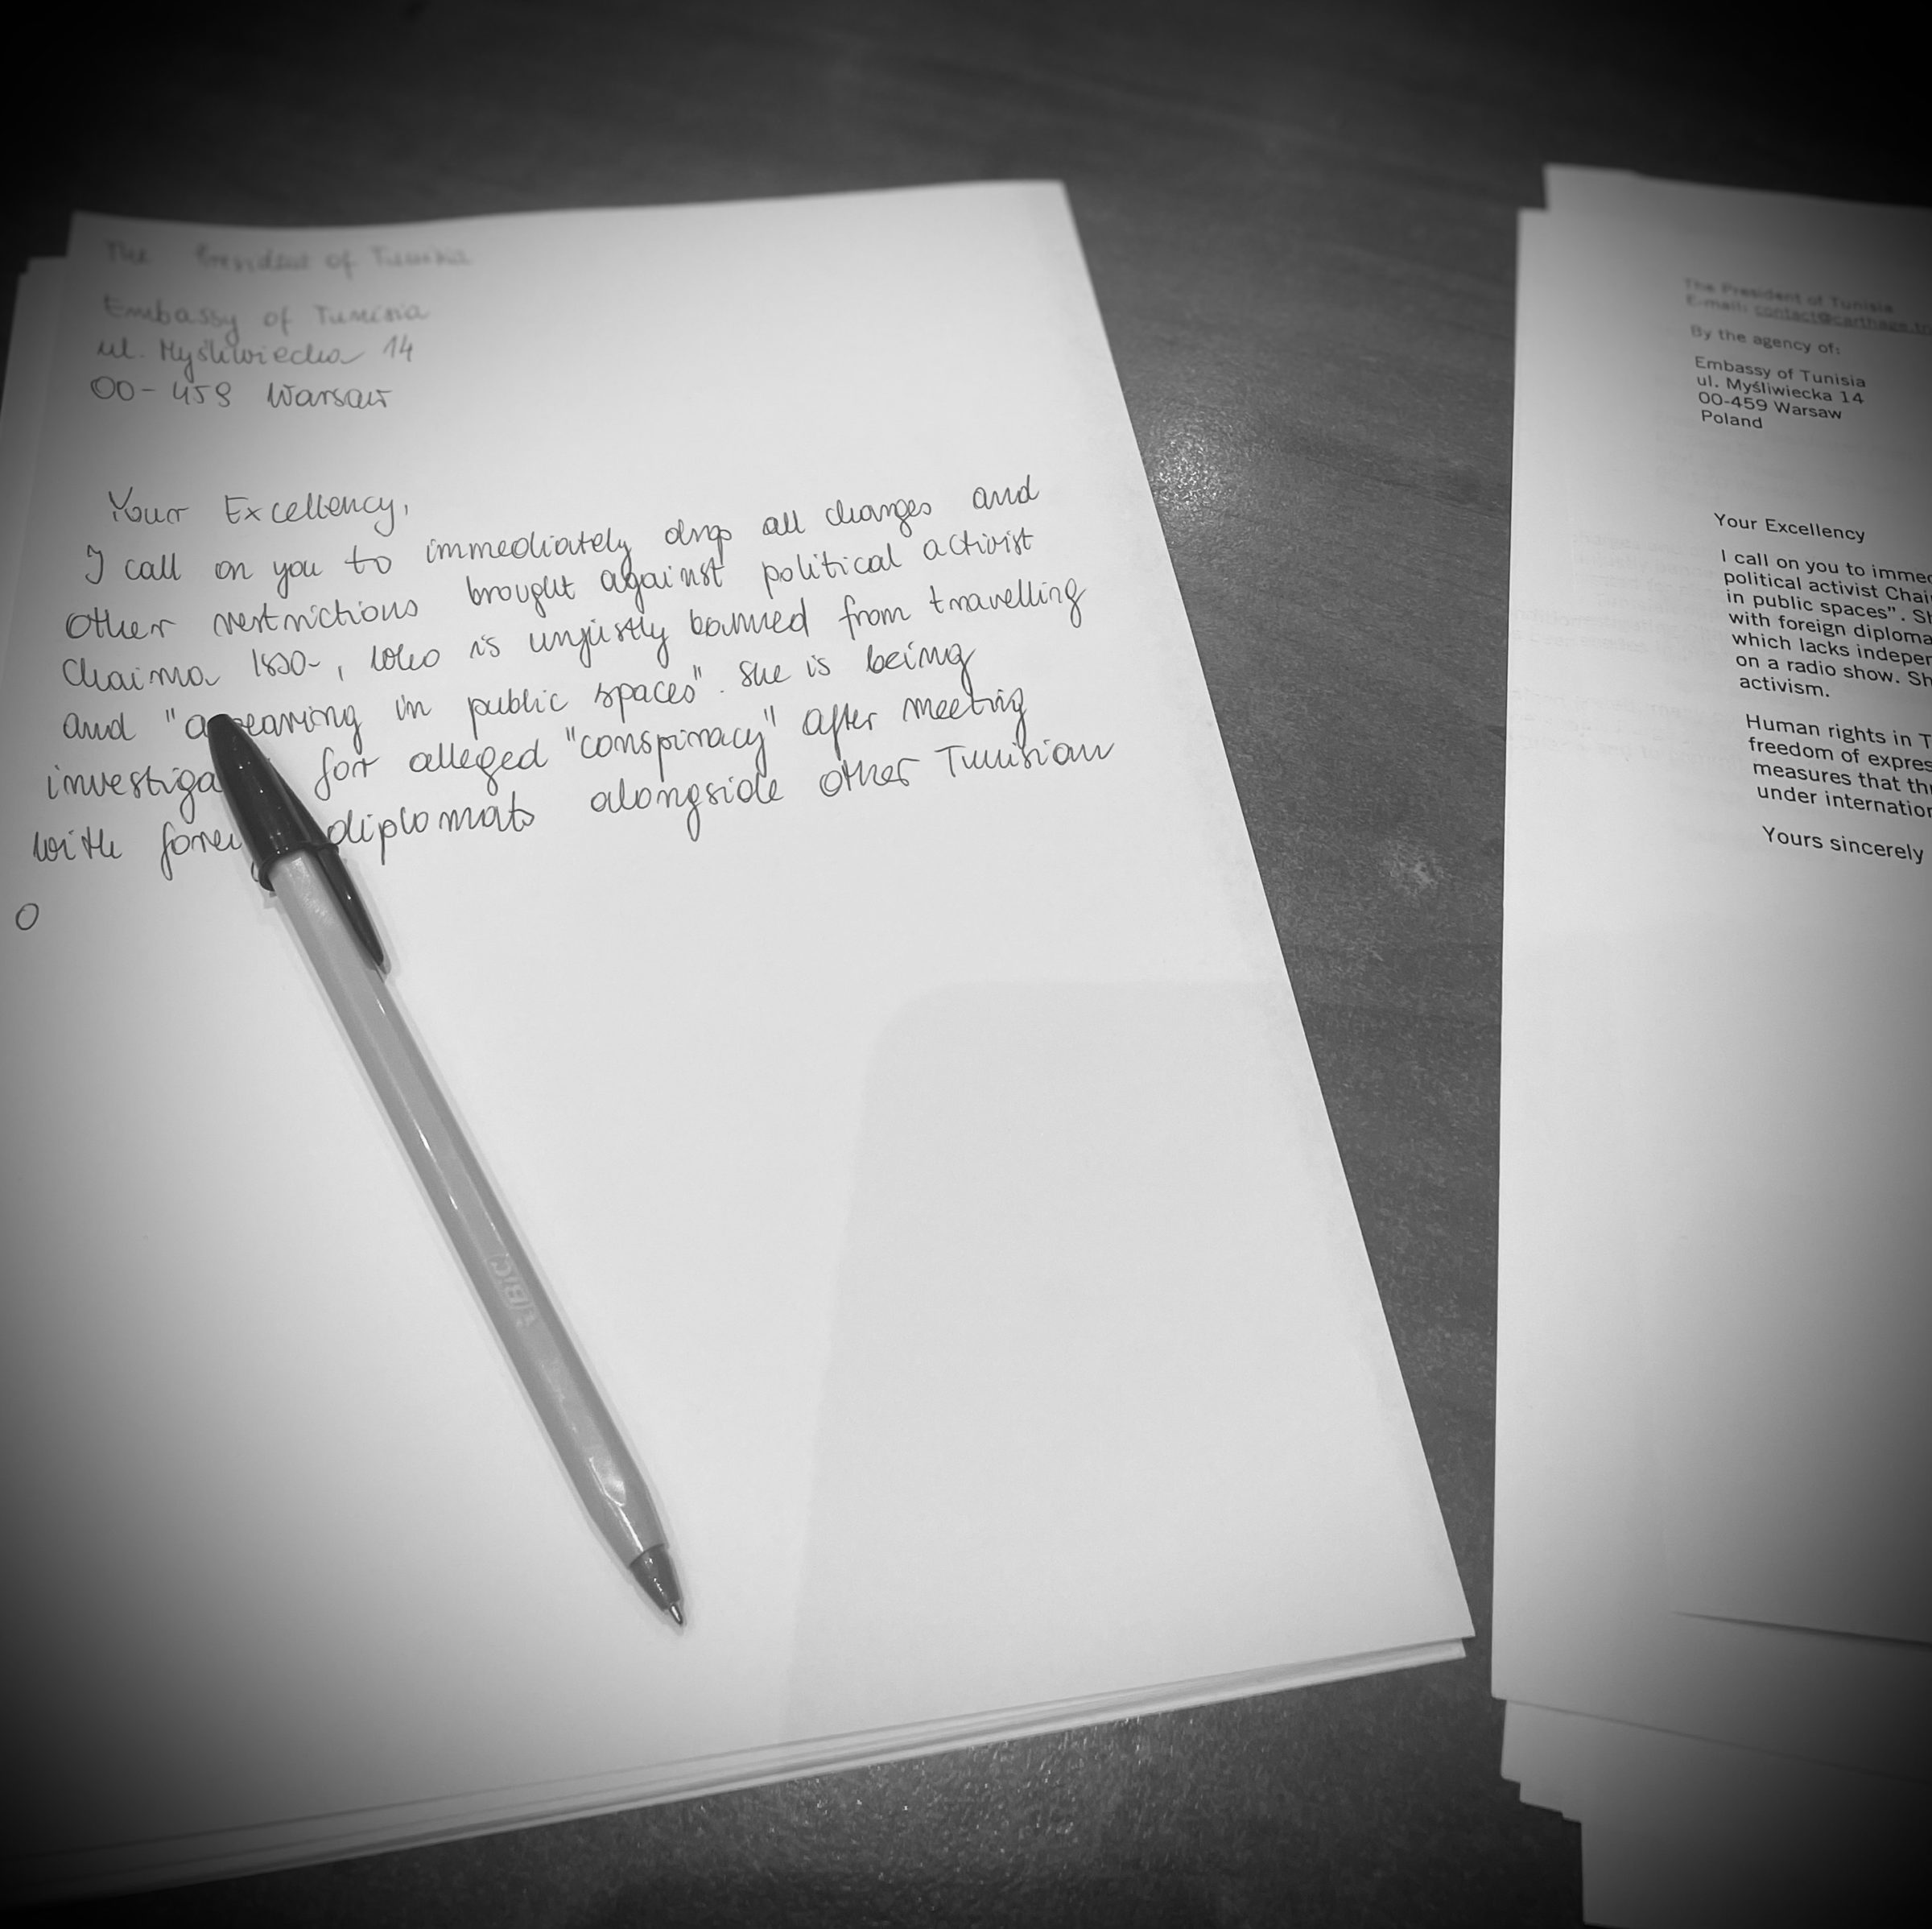 The President of Tunisia
Embassy of Tunisia
ul. Myśliwiecka 14
00-459 Warsaw
Your Excellency,
I call on you to immediately drop all charges and
other restrictions brought against political activist
Chaima Issa, who is unjustly banned from travelling
and "appearing in public spaces". She is being
investiga for alleged "conspiracy" after meeting
with forei diplomats alongside other Tunisian
o
BIC
The President of Tunisia
E-mail: contact@carthage.tn
By the agency of:
Embassy of Tunisia
ul. Myśliwiecka 14
00-459 Warsaw
Poland
Your Excellency
I call on you to immed
political activist Chai
in public spaces". Sh
with foreign diploma
which lacks indepen
on a radio show. Sh
activism.
Human rights in T
freedom of expres
measures that thr
under internation
Yours sincerely